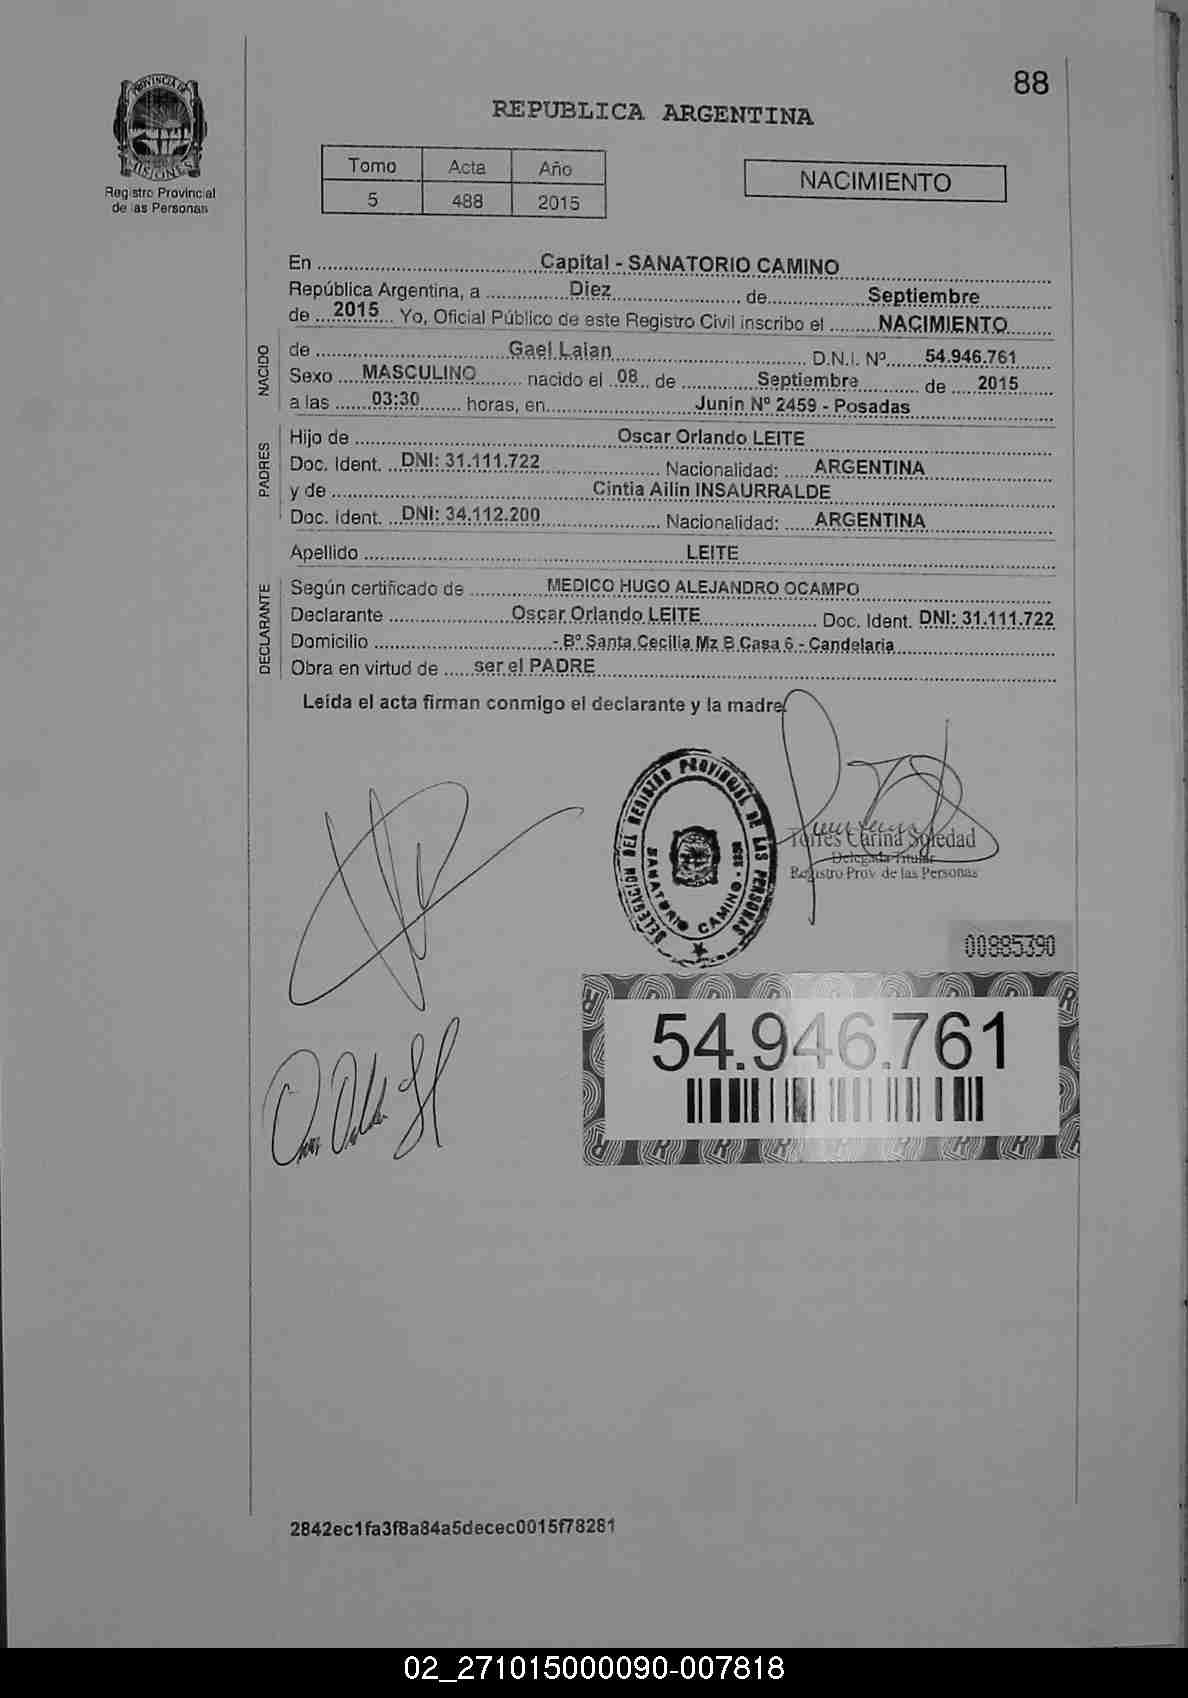 88
REPUBLICA ARGENTINA
PROVINCIA DE MISIONES
Registro Provincial
de las Personas
Tomo Acta Año
5 488 2015
NACIMIENTO
En ........ Capital - SANATORIO CAMINO ........
República Argentina, a ........ Diez ........ de ........ Septiembre ........
de .... 2015 .... Yo, Oficial Público de este Registro Civil inscribo el ........ NACIMIENTO ........
NACIDO
de ........ Gael Laian ........ D.N.I. Nº ...... 54.946.761 ......
Sexo .... MASCULINO ........ nacido el .. 08 .. de ........ Septiembre ........ de .... 2015 ......
a las ...... 03:30 ...... horas, en ........ Junin Nº 2459 - Posadas ........
PADRES
Hijo de ........ Oscar Orlando LEITE ........
Doc. Ident. .. DNI: 31.111.722 ........ Nacionalidad: ..... ARGENTINA ........
y de ........ Cintia Ailin INSAURRALDE ........
Doc. Ident. .. DNI: 34.112.200 ........ Nacionalidad: ..... ARGENTINA ........
Apellido ........ LEITE ........
DECLARANTE
Según certificado de ........ MEDICO HUGO ALEJANDRO OCAMPO ........
Declarante ........ Oscar Orlando LEITE ........ Doc. Ident. DNI: 31.111.722
Domicilio ........ - Bº Santa Cecilia Mz B Casa 6 - Candelaria ........
Obra en virtud de ..... ser el PADRE ........
Leída el acta firman conmigo el declarante y la madre.
DELEGACION DEL REGISTRO PROVINCIAL DE LAS PERSONAS
SANATORIO CAMINO
Torres Carina Soledad
Delegada Titular
Registro Prov. de las Personas
00885390
54.946.761
2842ec1fa3f8a84a5decec0015f78281
02_271015000090-007818